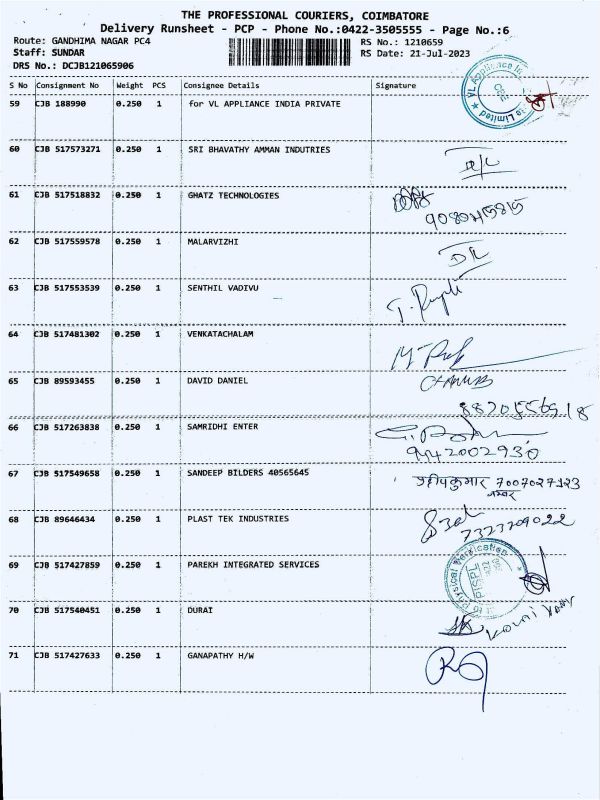 THE PROFESSIONAL COURIERS, COIMBATORE
Delivery Runsheet - PCP - Phone No.:0422-3505555 - Page No.:6
Route: GANDHIMA NAGAR PC4 RS No.: 1210659
Staff: SUNDAR RS Date: 21-Jul-2023
DRS No.: DCJB121065906
S No Consignment No Weight PCS Consignee Details Signature
59 CJB 188990 0.250 1 for VL APPLIANCE INDIA PRIVATE
60 CJB 517573271 0.250 1 SRI BHAVATHY AMMAN INDUTRIES
61 CJB 517518832 0.250 1 GHATZ TECHNOLOGIES
62 CJB 517559578 0.250 1 MALARVIZHI
63 CJB 517553539 0.250 1 SENTHIL VADIVU
64 CJB 517481302 0.250 1 VENKATACHALAM
65 CJB 89593455 0.250 1 DAVID DANIEL
66 CJB 517263838 0.250 1 SAMRIDHI ENTER
9442002930
67 CJB 517549658 0.250 1 SANDEEP BILDERS 40565645
7007027123
68 CJB 89646434 0.250 1 PLAST TEK INDUSTRIES
7323709022
69 CJB 517427859 0.250 1 PAREKH INTEGRATED SERVICES
PISPL
70 CJB 517540451 0.250 1 DURAI
71 CJB 517427633 0.250 1 GANAPATHY H/W